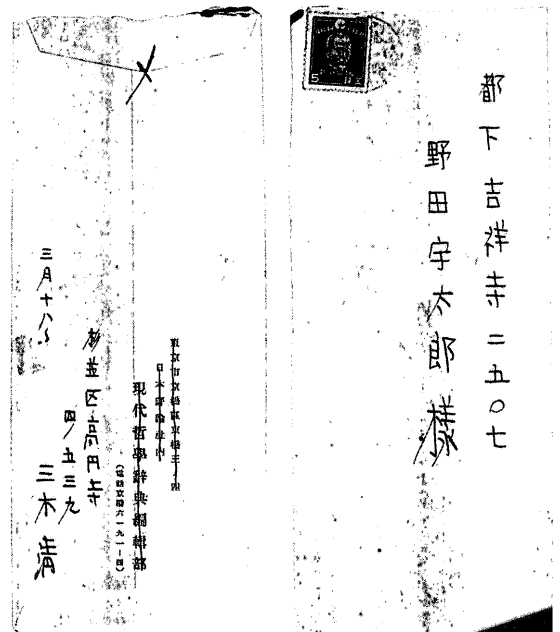 都下吉祥寺二五〇七
野田宇太郎様
5
東京市京橋區京橋三ノ四
日本評論社内
現代哲學辞典編輯部
（電話京橋六一九一―四）
杉並区高円寺
四ノ五三九
三木清
三月十八日
〆